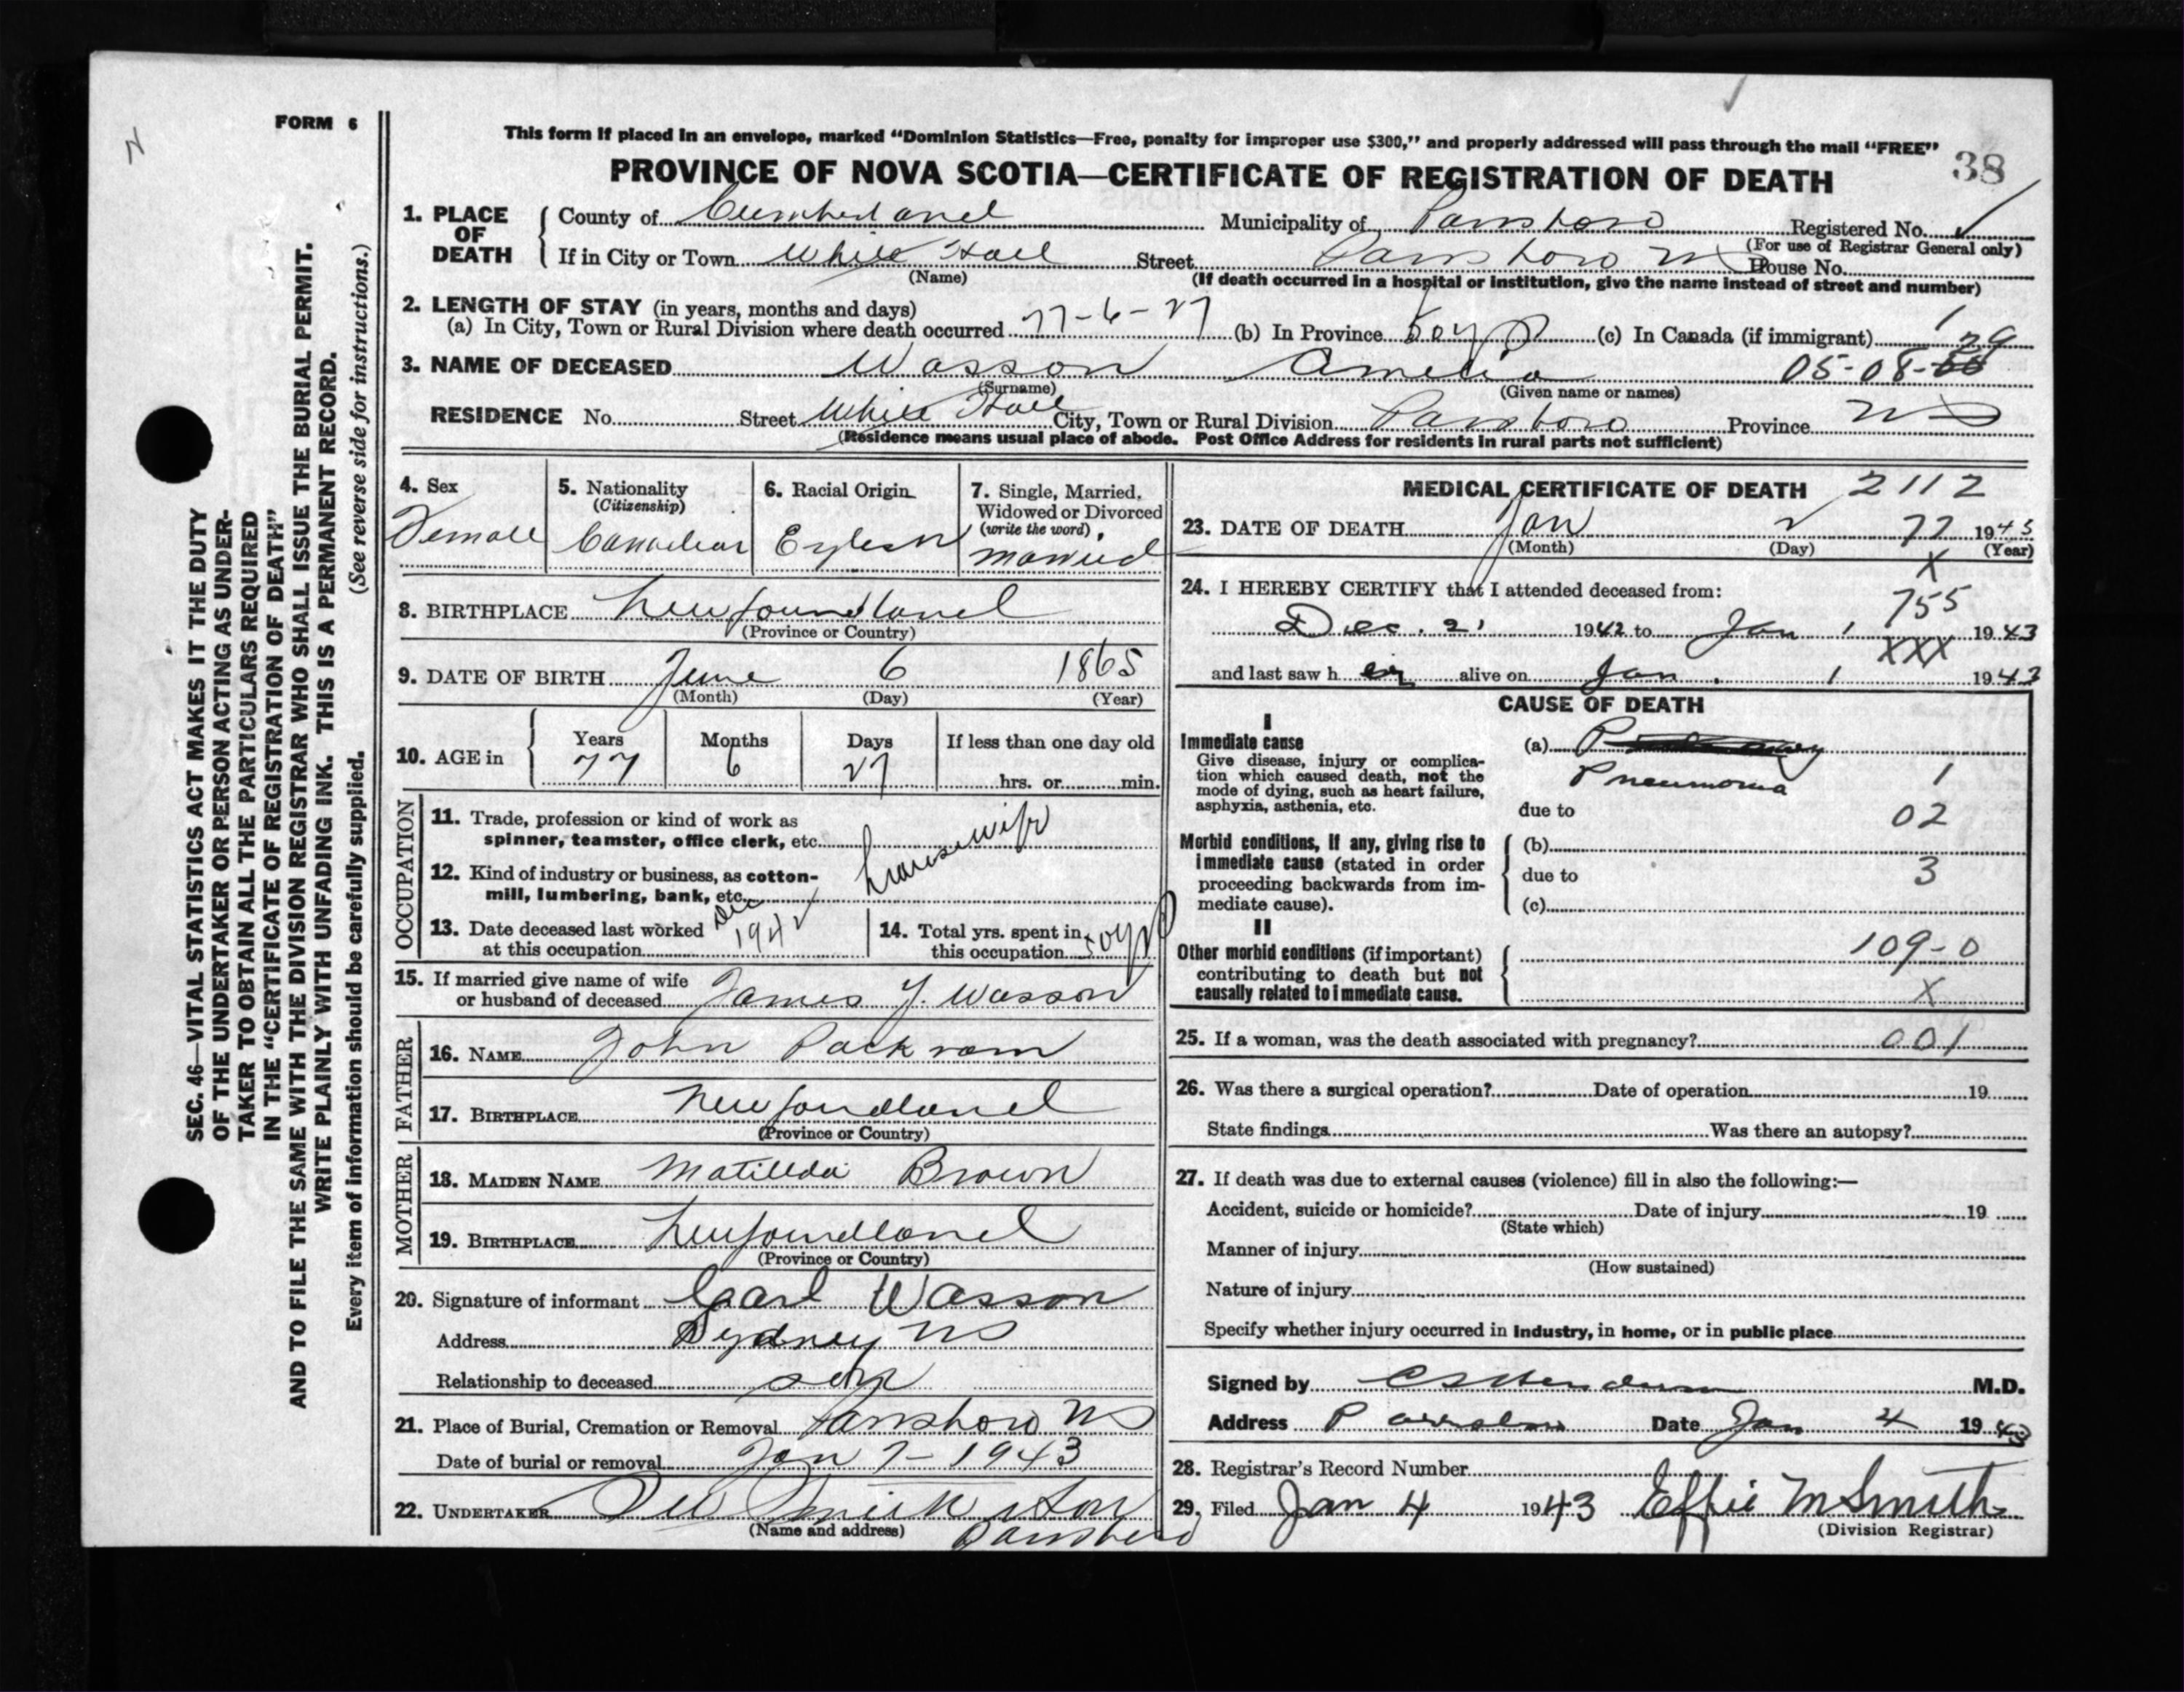 FORM 6
This form if placed in an envelope, marked "Dominion Statistics—Free, penalty for improper use $300," and properly addressed will pass through the mail "FREE"
PROVINCE OF NOVA SCOTIA—CERTIFICATE OF REGISTRATION OF DEATH 38
1. PLACE OF DEATH
County of Cumberland Municipality of Parrsboro Registered No.
(For use of Registrar General only)
If in City or Town White Hall Street Parrsboro NS House No.
(Name) (If death occurred in a hospital or institution, give the name instead of street and number)
2. LENGTH OF STAY (in years, months and days)
(a) In City, Town or Rural Division where death occurred 77-6-27 (b) In Province 50 yrs (c) In Canada (if immigrant) 1
3. NAME OF DECEASED Wasson Amelia 05-08- 29
(Surname) (Given name or names)
RESIDENCE No. Street White Hall City, Town or Rural Division Parrsboro Province NS
(Residence means usual place of abode. Post Office Address for residents in rural parts not sufficient)
4. Sex Female
5. Nationality (Citizenship) Canadian
6. Racial Origin English
7. Single, Married, Widowed or Divorced (write the word) Married
8. BIRTHPLACE Newfoundland
(Province or Country)
9. DATE OF BIRTH June 6 1865
(Month) (Day) (Year)
10. AGE in Years 77 Months 6 Days 27 If less than one day old hrs. or min.
OCCUPATION
11. Trade, profession or kind of work as
spinner, teamster, office clerk, etc. housewife
12. Kind of industry or business, as cotton-
mill, lumbering, bank, etc.
13. Date deceased last worked at this occupation Dec 1942
14. Total yrs. spent in this occupation 50 yrs
15. If married give name of wife
or husband of deceased James Y. Wasson
FATHER
16. NAME John Packram
17. BIRTHPLACE Newfoundland
(Province or Country)
MOTHER
18. MAIDEN NAME Matillda Brown
19. BIRTHPLACE Newfoundland
(Province or Country)
20. Signature of informant Carl Wasson
Address Sydney NS
Relationship to deceased son
21. Place of Burial, Cremation or Removal Parrsboro NS
Date of burial or removal Jan 7 - 1943
22. UNDERTAKER Smith & Son
(Name and address) Parrsboro
MEDICAL CERTIFICATE OF DEATH 2112
23. DATE OF DEATH Jan 2 77 1943
(Month) (Day) (Year)
X
24. I HEREBY CERTIFY that I attended deceased from:
755
Dec. 21 1942 to Jan 1 1943
XXX
and last saw her alive on Jan. 1 1943
CAUSE OF DEATH
I
Immediate cause
Give disease, injury or complica-
tion which caused death, not the
mode of dying, such as heart failure,
asphyxia, asthenia, etc.
(a)
Pneumonia 1
due to 02
Morbid conditions, if any, giving rise to
immediate cause (stated in order
proceeding backwards from im-
mediate cause).
(b)
due to 3
(c)
II
Other morbid conditions (if important)
contributing to death but not
causally related to immediate cause.
109-0
X
25. If a woman, was the death associated with pregnancy? 001
26. Was there a surgical operation? Date of operation 19
State findings Was there an autopsy?
27. If death was due to external causes (violence) fill in also the following:—
Accident, suicide or homicide? Date of injury 19
(State which)
Manner of injury
(How sustained)
Nature of injury
Specify whether injury occurred in industry, in home, or in public place
Signed by M.D.
Address Parrsboro Date Jan 4 1943
28. Registrar's Record Number
29. Filed Jan 4 1943 Effie M Smith
(Division Registrar)
SEC. 46—VITAL STATISTICS ACT MAKES IT THE DUTY
OF THE UNDERTAKER OR PERSON ACTING AS UNDER-
TAKER TO OBTAIN ALL THE PARTICULARS REQUIRED
IN THE "CERTIFICATE OF REGISTRATION OF DEATH"
AND TO FILE THE SAME WITH THE DIVISION REGISTRAR WHO SHALL ISSUE THE BURIAL PERMIT.
WRITE PLAINLY WITH UNFADING INK. THIS IS A PERMANENT RECORD.
Every item of information should be carefully supplied. (See reverse side for instructions.)